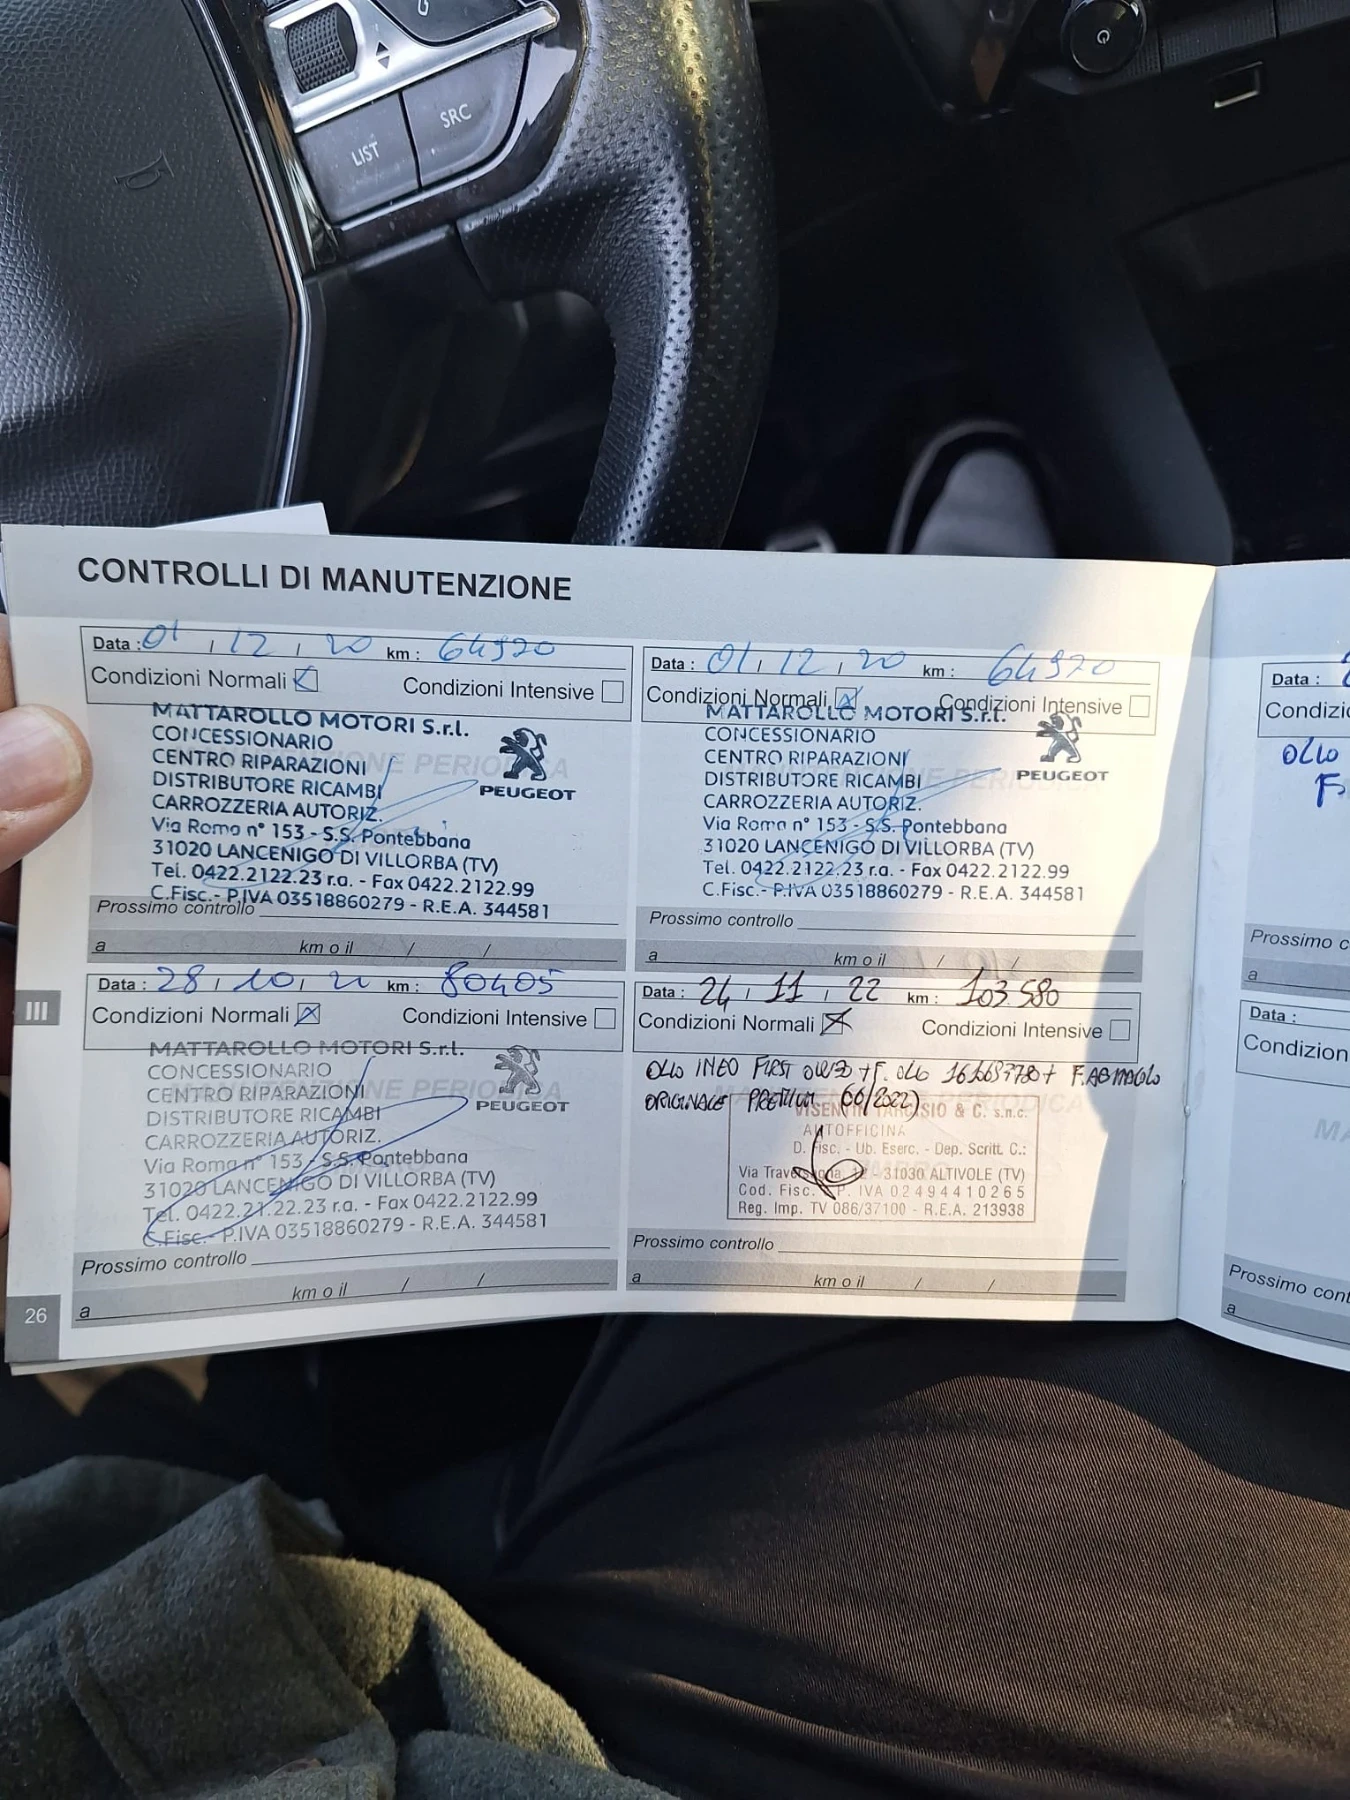 LIST
SRC
CONTROLLI DI MANUTENZIONE
Data : 01 / 12 / 20 km : 64920
Condizioni Normali
Condizioni Intensive
MATTAROLLO MOTORI S.r.l.
CONCESSIONARIO
CENTRO RIPARAZIONI
DISTRIBUTORE RICAMBI
CARROZZERIA AUTORIZ.
Via Roma n° 153 - S.S. Pontebbana
31020 LANCENIGO DI VILLORBA (TV)
Tel. 0422.2122.23 r.a. - Fax 0422.2122.99
C.Fisc.- P.IVA 03518860279 - R.E.A. 344581
PEUGEOT
Prossimo controllo
a km o il / /
Data : 01 / 12 / 20 km : 64920
Condizioni Normali
Condizioni Intensive
MATTAROLLO MOTORI S.r.l.
CONCESSIONARIO
CENTRO RIPARAZIONI
DISTRIBUTORE RICAMBI
CARROZZERIA AUTORIZ.
Via Roma n° 153 - S.S. Pontebbana
31020 LANCENIGO DI VILLORBA (TV)
Tel. 0422.2122.23 r.a. - Fax 0422.2122.99
C.Fisc.- P.IVA 03518860279 - R.E.A. 344581
PEUGEOT
Prossimo controllo
a km o il / /
Data : 28 / 10 / km : 80405
Condizioni Normali
Condizioni Intensive
MATTAROLLO MOTORI S.r.l.
CONCESSIONARIO
CENTRO RIPARAZIONI
DISTRIBUTORE RICAMBI
CARROZZERIA AUTORIZ.
Via Roma n° 153 - S.S. Pontebbana
31020 LANCENIGO DI VILLORBA (TV)
Tel. 0422.21.22.23 r.a. - Fax 0422.2122.99
C.Fisc.- P.IVA 03518860279 - R.E.A. 344581
PEUGEOT
Prossimo controllo
a km o il / /
Data : 24 / 11 / 22 km : 103.580
Condizioni Normali
Condizioni Intensive
OLIO INEO FIRST 0W30 + F. OLIO
ORIGINALE PREMIUM
& C. s.n.c.
AUTOFFICINA
D. Fisc. - Ub. Eserc. - Dep. Scritt. C.:
31030 ALTIVOLE (TV)
Cod. Fisc. P. IVA 02494410265
Reg. Imp. TV 086/37100 - R.E.A. 213938
Prossimo controllo
a km o il / /
III
26
Data :
OLIO
F.
a
Data :
a